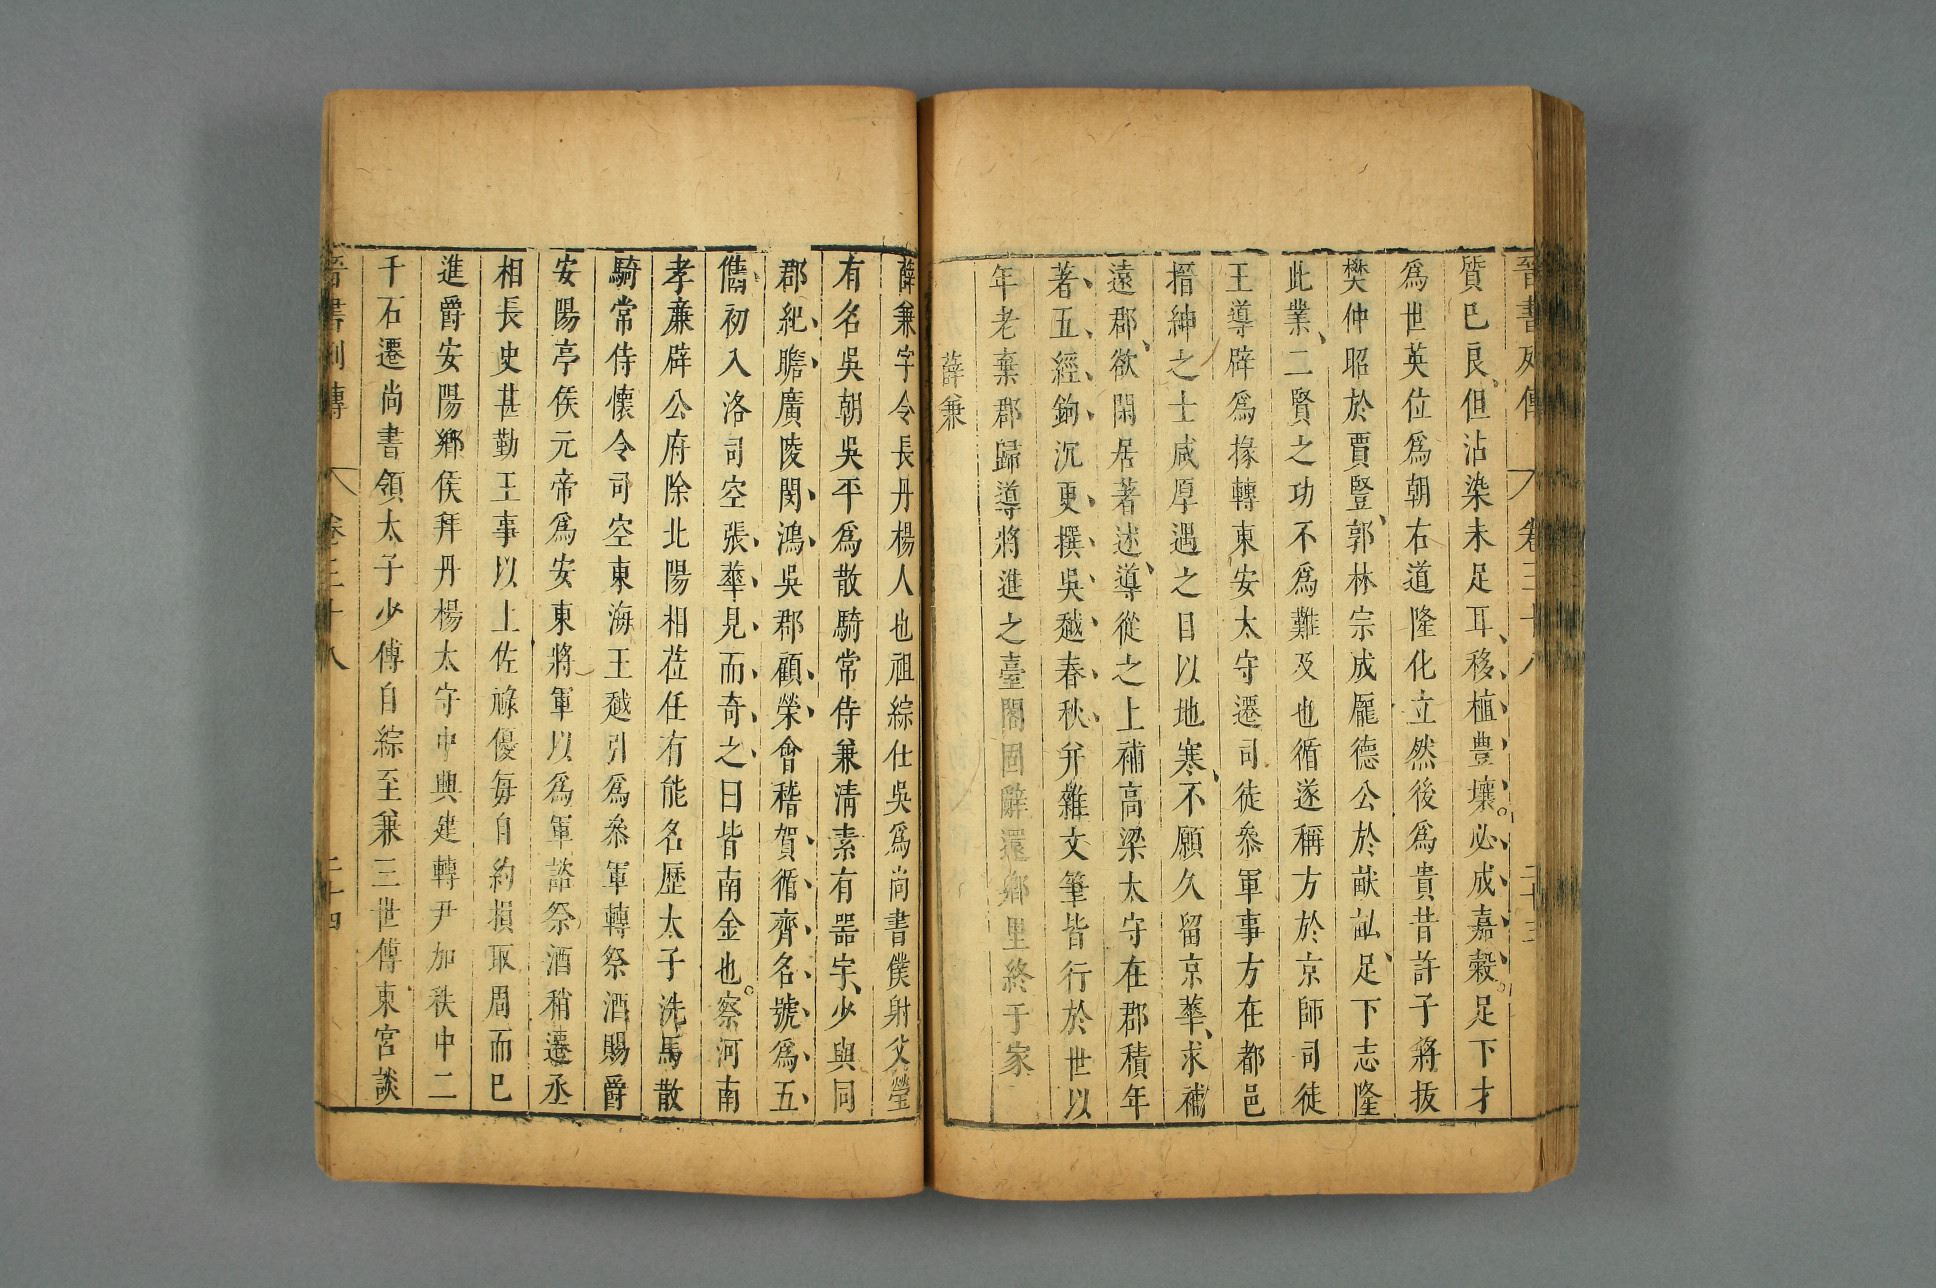 晉書列傳 卷三十八 二十三
質已良但沾染未足耳移植豐壤必成嘉穀足下才
爲世英位爲朝右道隆化立然後爲貴昔許子將拔
樊仲昭於賈豎郭林宗成龐德公於畎畝足下志隆
此業二賢之功不爲難及也循遂稱方於京師司徒
王導辟爲掾轉東安太守遷司徒叅軍事方在都邑
搢紳之士咸厚遇之自以地寒不願久留京華求補
遠郡欲閑居著述導從之上補高梁太守在郡積年
著五經鉤沉更撰吳越春秋幷雜文筆皆行於世以
年老棄郡歸導將進之臺閣固辭還鄉里終于家
薛兼
薛兼字令長丹楊人也祖綜仕吳爲尚書僕射父瑩
有名吳朝吳平爲散騎常侍兼淸素有器宇少與同
郡紀瞻廣陵閔鴻吳郡顧榮會稽賀循齊名號爲五
儁初入洛司空張華見而奇之曰皆南金也察河南
孝廉辟公府除北陽相莅任有能名歷太子洗馬散
騎常侍懷令司空東海王越引爲叅軍轉祭酒賜爵
安陽亭侯元帝爲安東將軍以爲軍諮祭酒稍遷丞
相長史甚勤王事以上佐祿優每自約損取周而已
進爵安陽鄉侯拜丹楊太守中興建轉尹加秩中二
千石遷尚書領太子少傅自綜至兼三世傅東宮談
晉書列傳 卷三十八 二十四